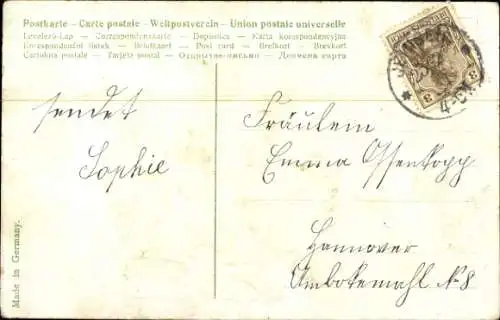 Postkarte – Carte postale – Weltpostverein – Union postale universelle
Levelező-Lap — Correspondenzkarte — Dopisnica — Karta korespondencyjna
Korespondenční lístek — Briefkaart — Post card — Brefkort — Brevkort
Cartolina postale — Tarjeta postal — Открытое письмо — Дописна карта
sendet
Sophie
Fräulein
Emma Ossenkopp
Hannover
Am Bokemahl № 8
Made in Germany.
3 3